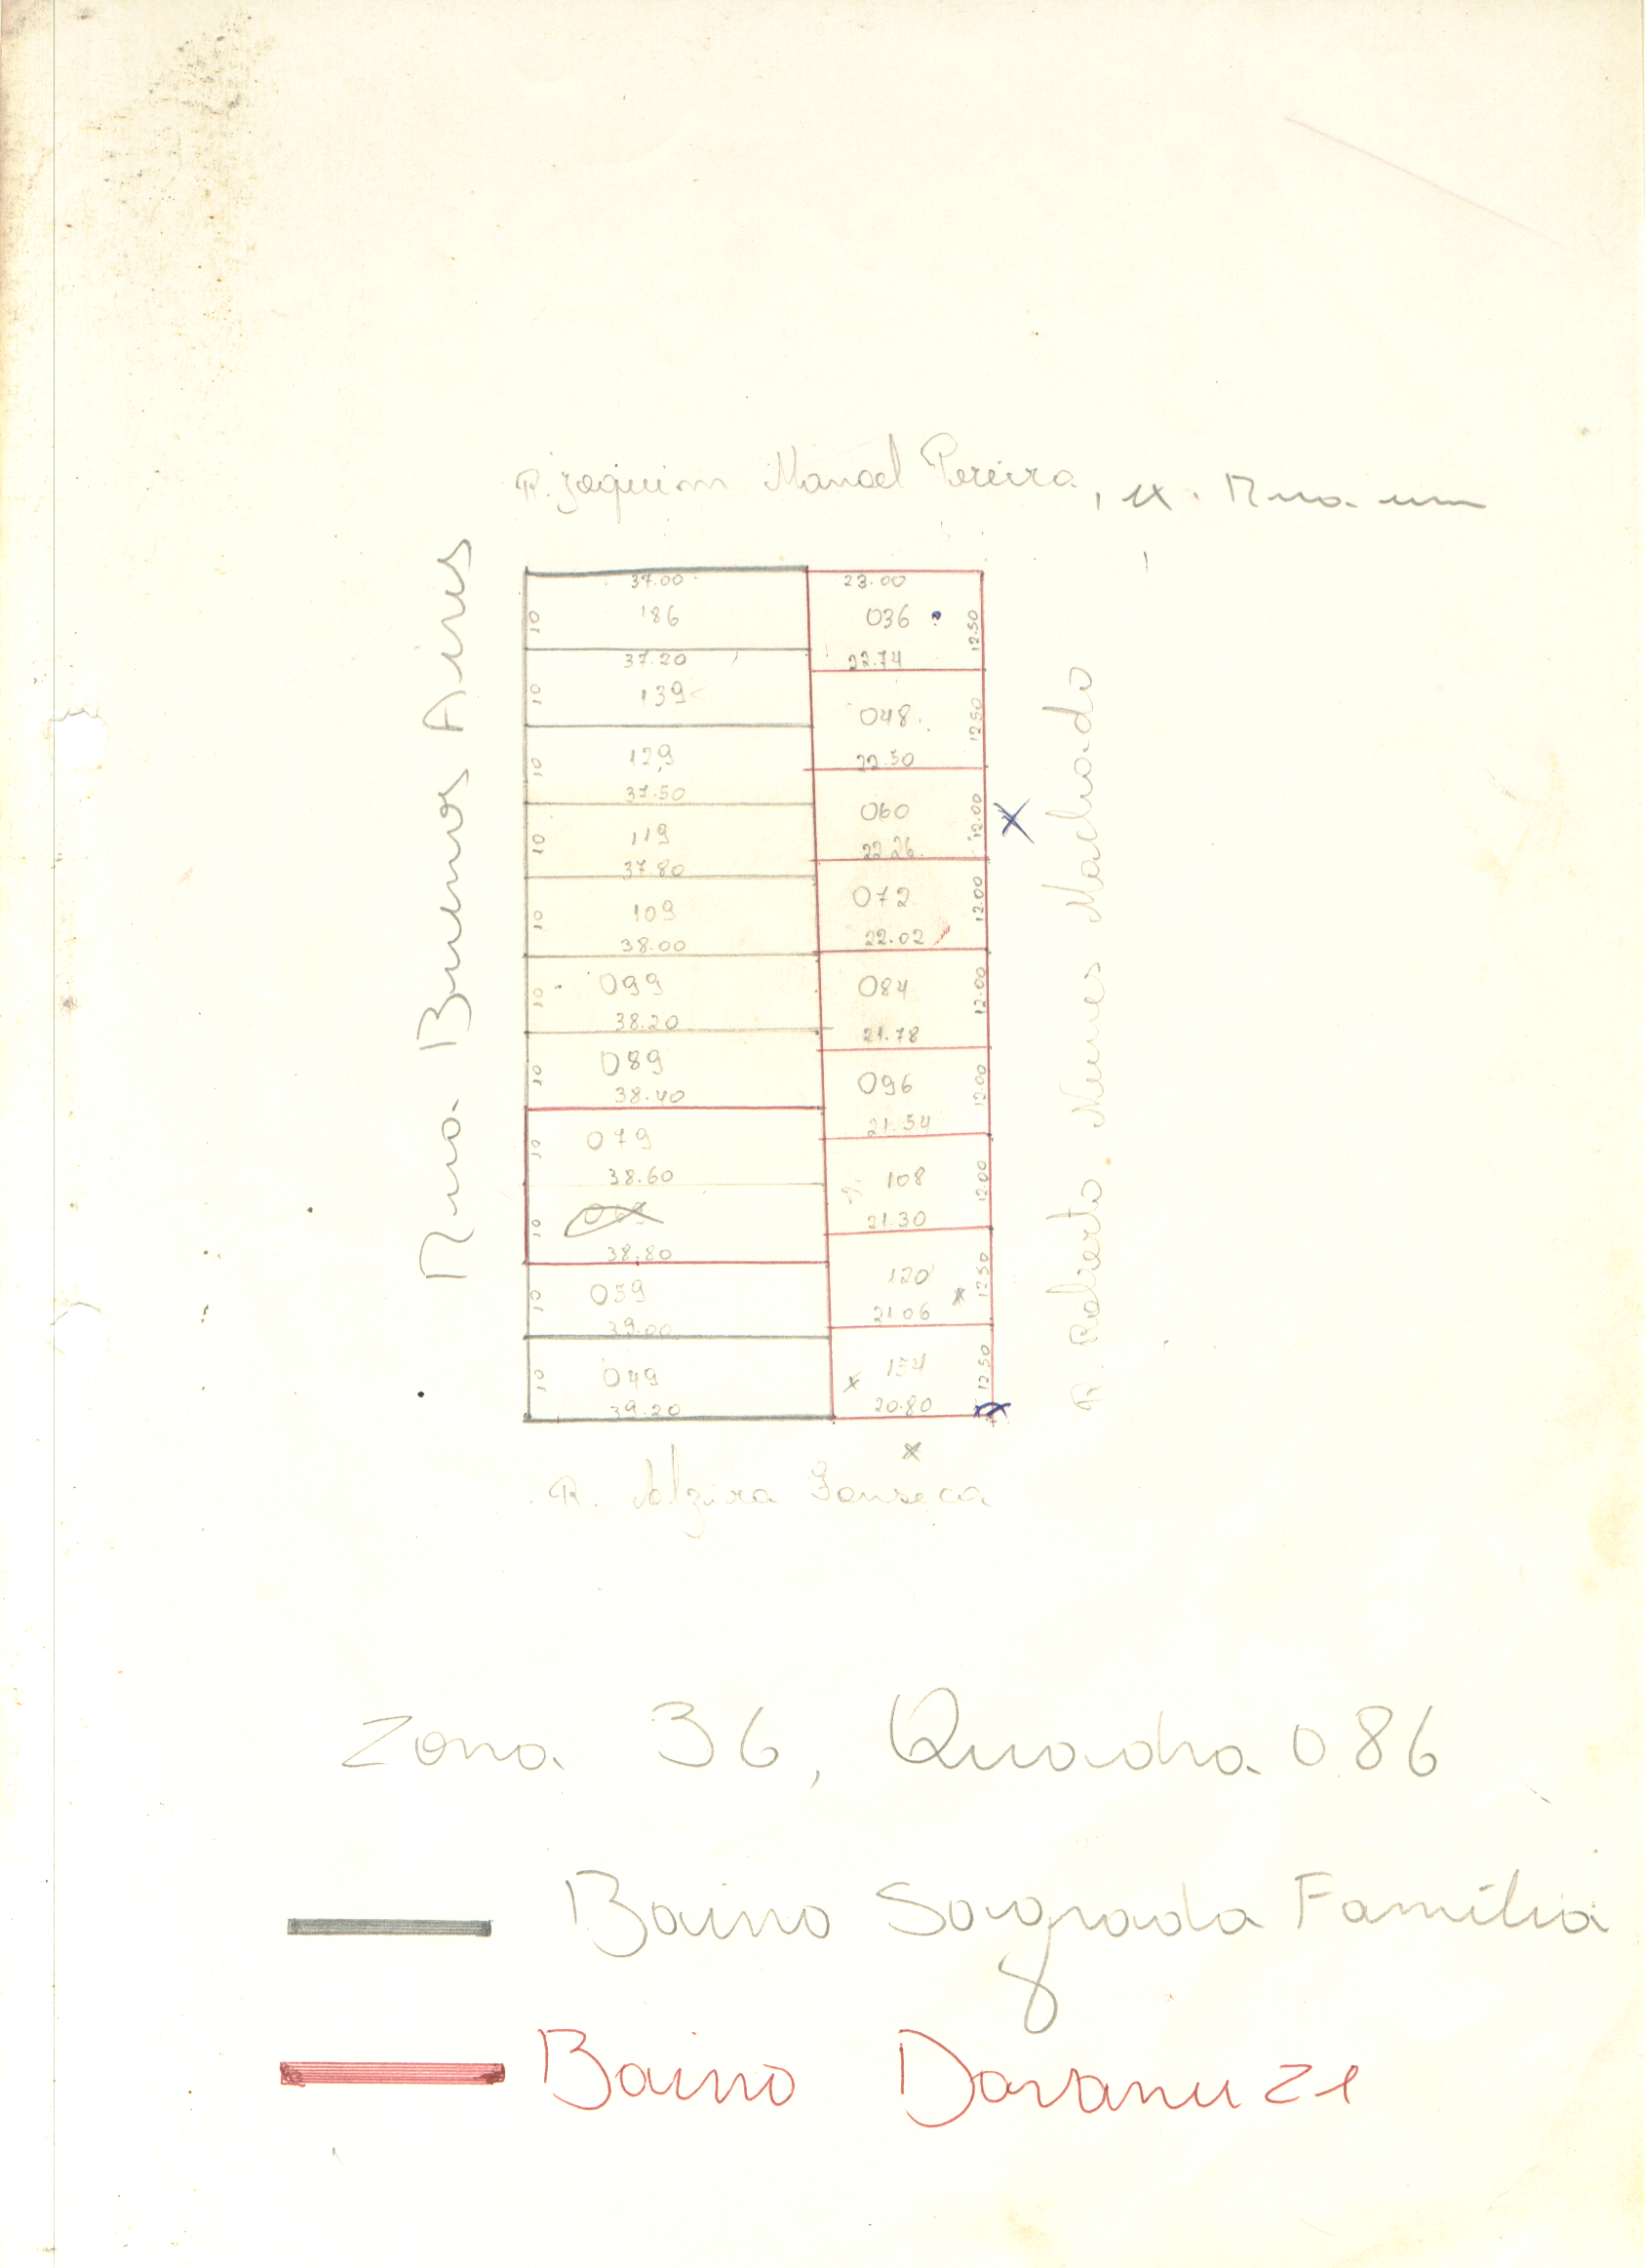 R. Joaquim Manoel Pereira, ex. Rua um
Rua Buenos Aires
37.00
10
186
37.20
10
139
10
129
37.50
10
119
37.80
10
109
38.00
10
099
38.20
10
089
38.40
10
079
38.60
10
38.80
10
059
39.00
10
049
39.20
23.00
036
12.50
22.74
048
12.50
22.50
060
12.00
22.26
072
12.00
22.02
084
12.00
21.78
096
12.00
21.54
108
12.00
21.30
120
12.50
21.06
154
12.50
20.80
R. Roberto Nunes Machado
R. Alzira Fonseca
Zona 36, Quadra 086
Bairro Sagrada Família
Bairro Davanuze